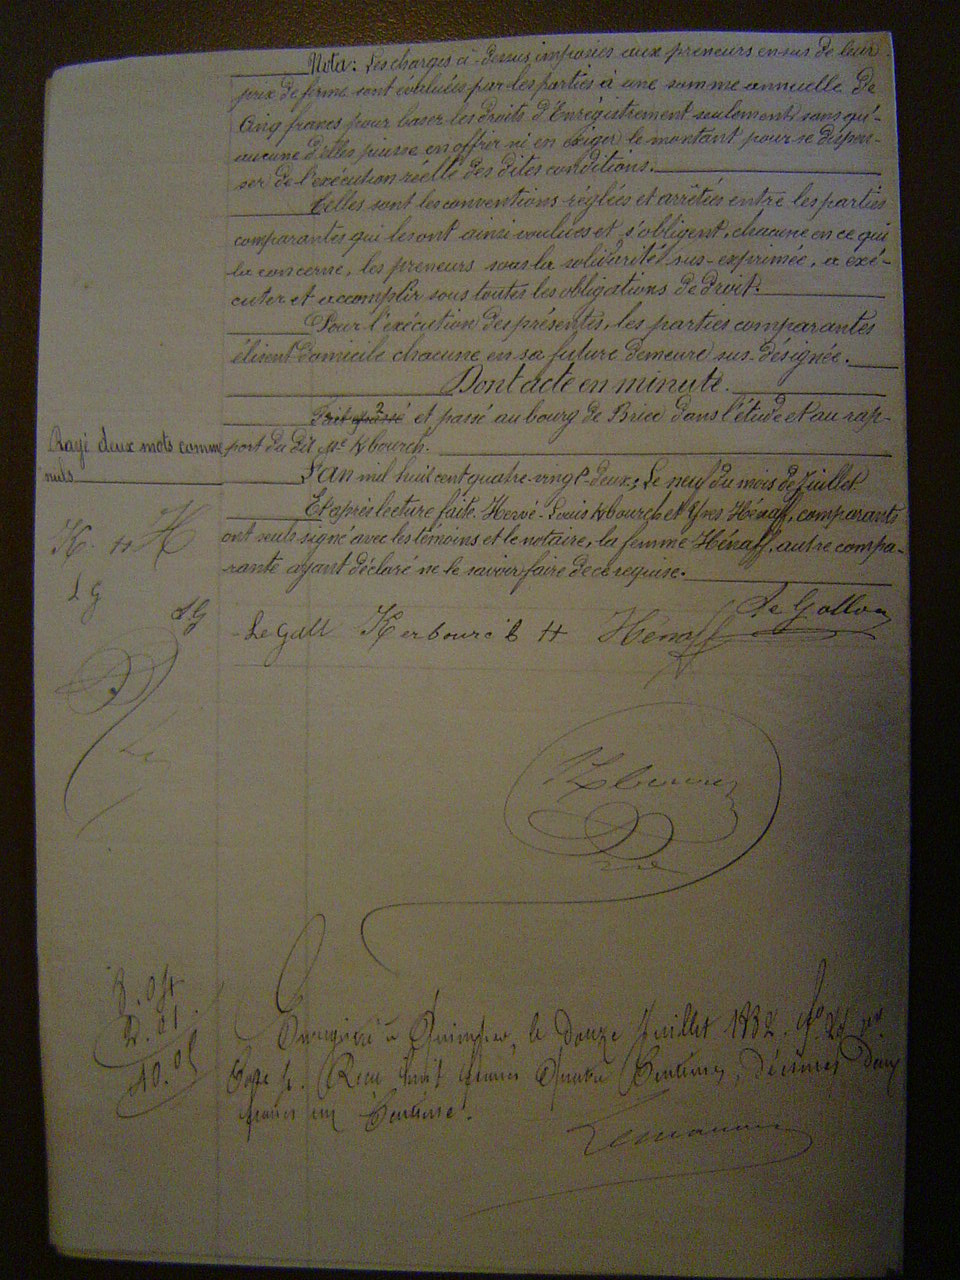 Nota: Les charges ci-dessus imposées aux preneurs en sus de leur
prix de ferme sont évaluées par les parties à une somme annuelle de
Cinq francs pour baser les droits d'Enregistrement seulement, sans qu'-
aucune d'elles puisse en offrir ni en exiger le montant pour se dispen-
ser de l'exécution réelle des dites conditions.
Telles sont les conventions réglées et arrêtées entre les parties
comparantes qui les ont ainsi voulues et s'obligent, chacune en ce qui
la concerne, les preneurs sous la solidarité sus-exprimée, a exé-
cuter et accomplir sous toutes les obligations de droit.
Pour l'exécution des présentes, les parties comparantes
élisent domicile chacune en sa future demeure sus-désignée.
Dont acte en minute.
et passé au bourg de Briec dans l'étude et au rap-
port du dit Me Kbourch.
Rayé deux mots comme
nuls
L'an mil huit cent quatre-vingt-deux, Le neuf du mois de Juillet
Et après lecture faite Hervé-Louis Kbourch et Yves Hénaff, comparants
ont seuls signé avec les témoins et le notaire, la femme Hénaff, autre compa-
rante ayant déclaré ne le savoir faire de ce requise.
K. H H
LG
LG
Le Gall Kerbourc'h H Hénaff Le Gollon
8.04
2.01
10.05
Enregistré à Quimper, le Douze Juillet 1882. fo
Case Reçu huit francs Quatre Centimes, Décimes Deux
francs un Centime.